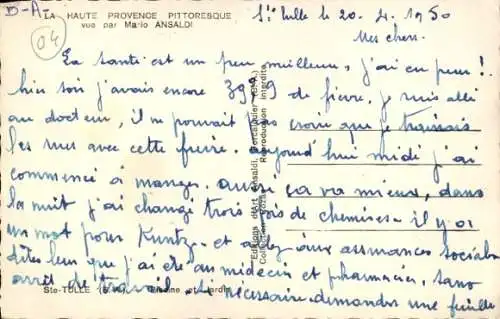 B-A
04
LA HAUTE PROVENCE PITTORESQUE
vue par Mario ANSALDI
Ste Tulle le 20. 4. 1950
Mes chers.
La santé est un peu meilleure, j'ai eu peur!
hier soir j'avais encore 39°9 de fièvre. je suis allé
au docteur, il ne pouvait pas croire que je trainais
les rues avec cette fièvre. aujourd'hui midi j'ai
commencé à manger. aussi ça va mieux, dans
la nuit j'ai changé trois fois de chemises - il y a
un mot pour Kuntz. et allez aux assurances sociales
dites leur que j'ai été au médecin et pharmacien, sans
arrêt de travail. si nécessaire demandez une feuille
Ste-TULLE
Editions d'Art Ansaldi, Forcalquier
Reproduction Interdite